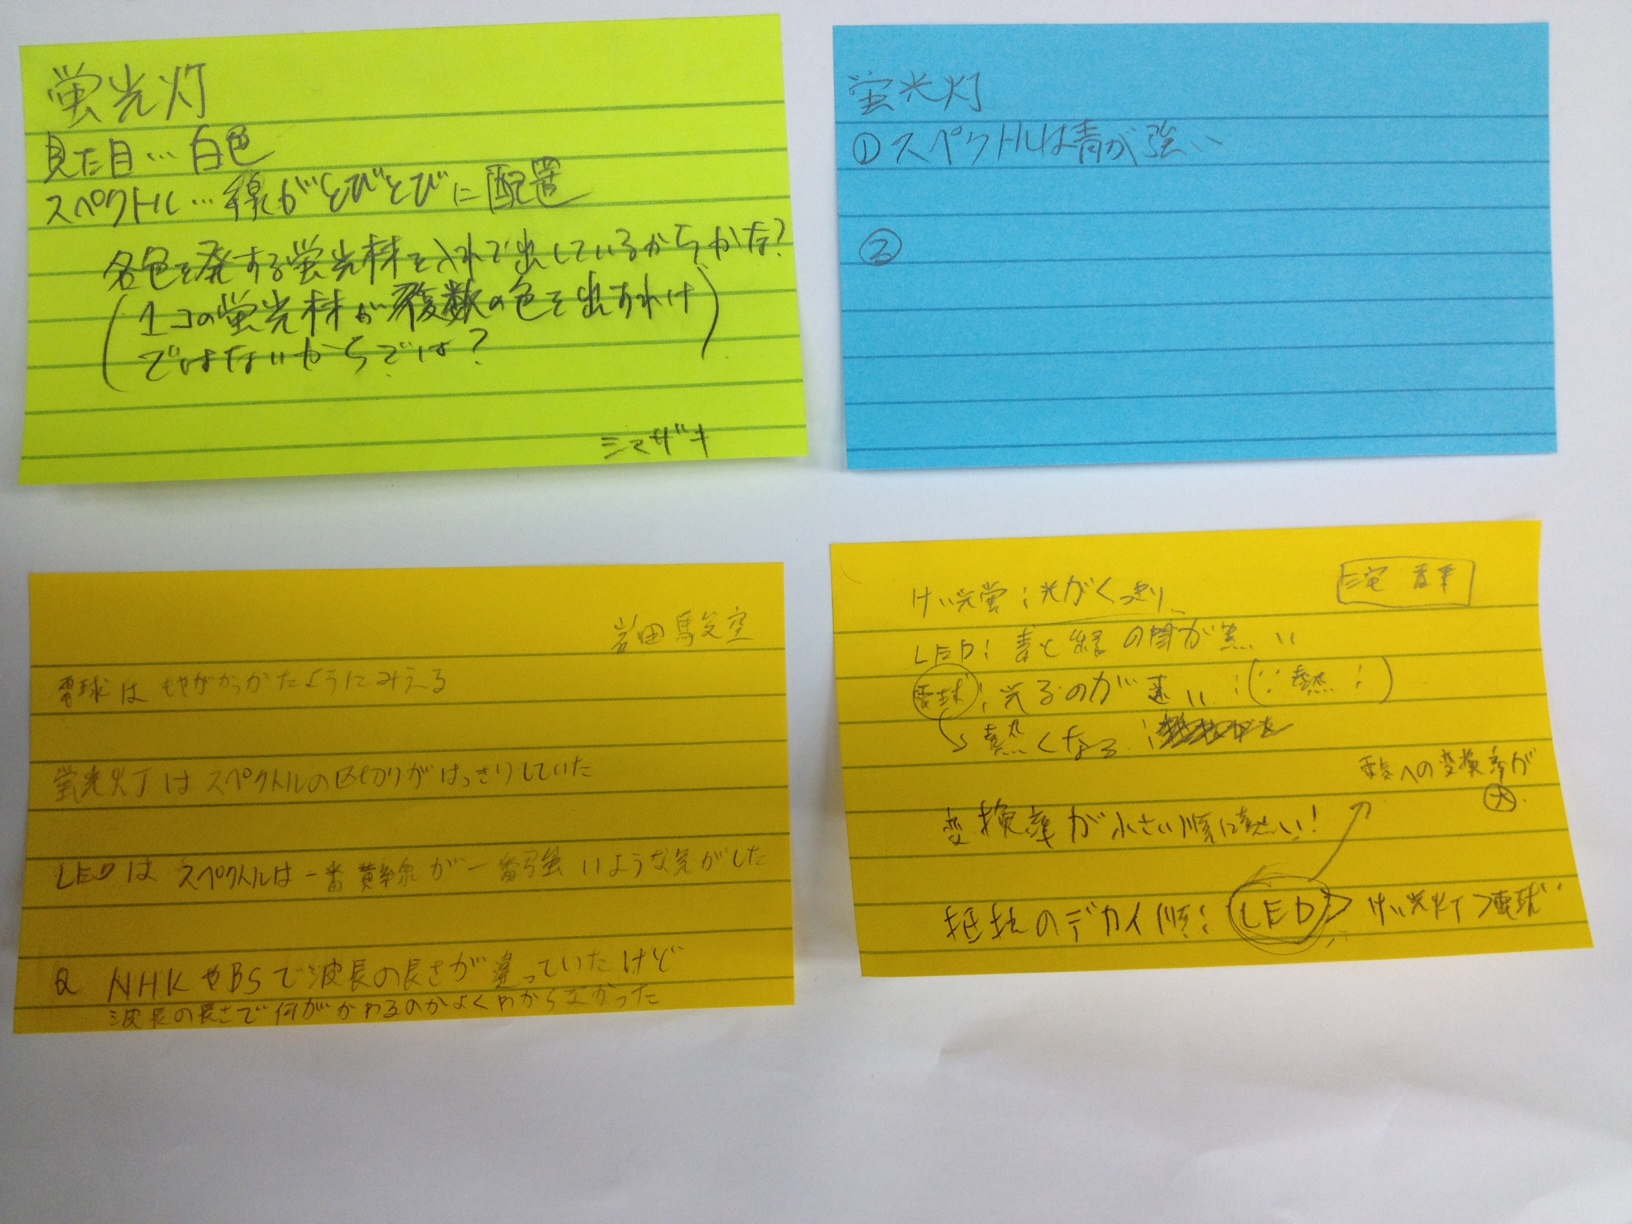 蛍光灯
見た目…白色
スペクトル…線がとびとびに配置
各色を発する蛍光材を入れて出しているからかな?
(1コの蛍光材が複数の色を出すわけ
ではないからでは?)
シマザキ
蛍光灯
①スペクトルは青が強い
②
岩田
電球はもやがかかったようにみえる
蛍光灯はスペクトルの区切りがはっきりしていた
LEDはスペクトルは一番黄緑が一番強いような気がした
Q NHKやBSで波長の長さが違っていたけど
波長の長さで何がかわるのかよくわからなかった
三宅
けい光蛍:光がくっきり
LED:青と緑の間が黒い
電球:光るのが遅い (∵熱!)
熱くなる
電気への変換率が
大
変換率が小さい順に熱い!
抵抗のデカイ順:LED>けい光灯>電球